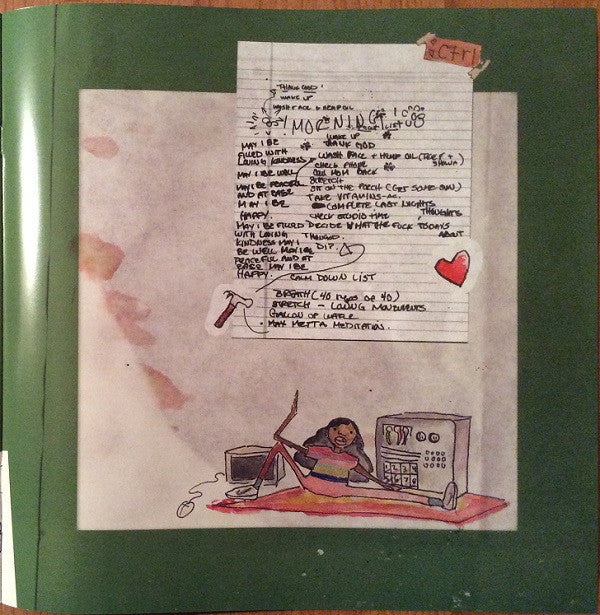 CTRL
THANK GOD!
WAKE UP
WASH FACE + HEMP OIL
MORNING LIST
WAKE UP
MAY I BE THANK GOD
FILLED WITH
LOVING KINDNESS WASH FACE + HEMP OIL
CHECK PHONE
MAY I BE WELL CALL MOM BACK
STRETCH
MAY I BE PEACEFUL SIT ON THE PORCH (GET SOME SUN)
AND AT EASE TAKE VITAMINS
MAY I BE COMPLETE LAST NIGHTS THOUGHTS
HAPPY. CHECK STUDIO TIME
MAY I BE FILLED DECIDE WHAT THE FUCK TODAYS ABOUT
WITH LOVING
KINDNESS MAY I
BE WELL MAY I BE
PEACEFUL AND AT
EASE MAY I BE
HAPPY. CALM DOWN LIST
BREATH
STRETCH - LOVING MOVEMENTS
GALLON OF WATER
MAY METTA MEDITATION.